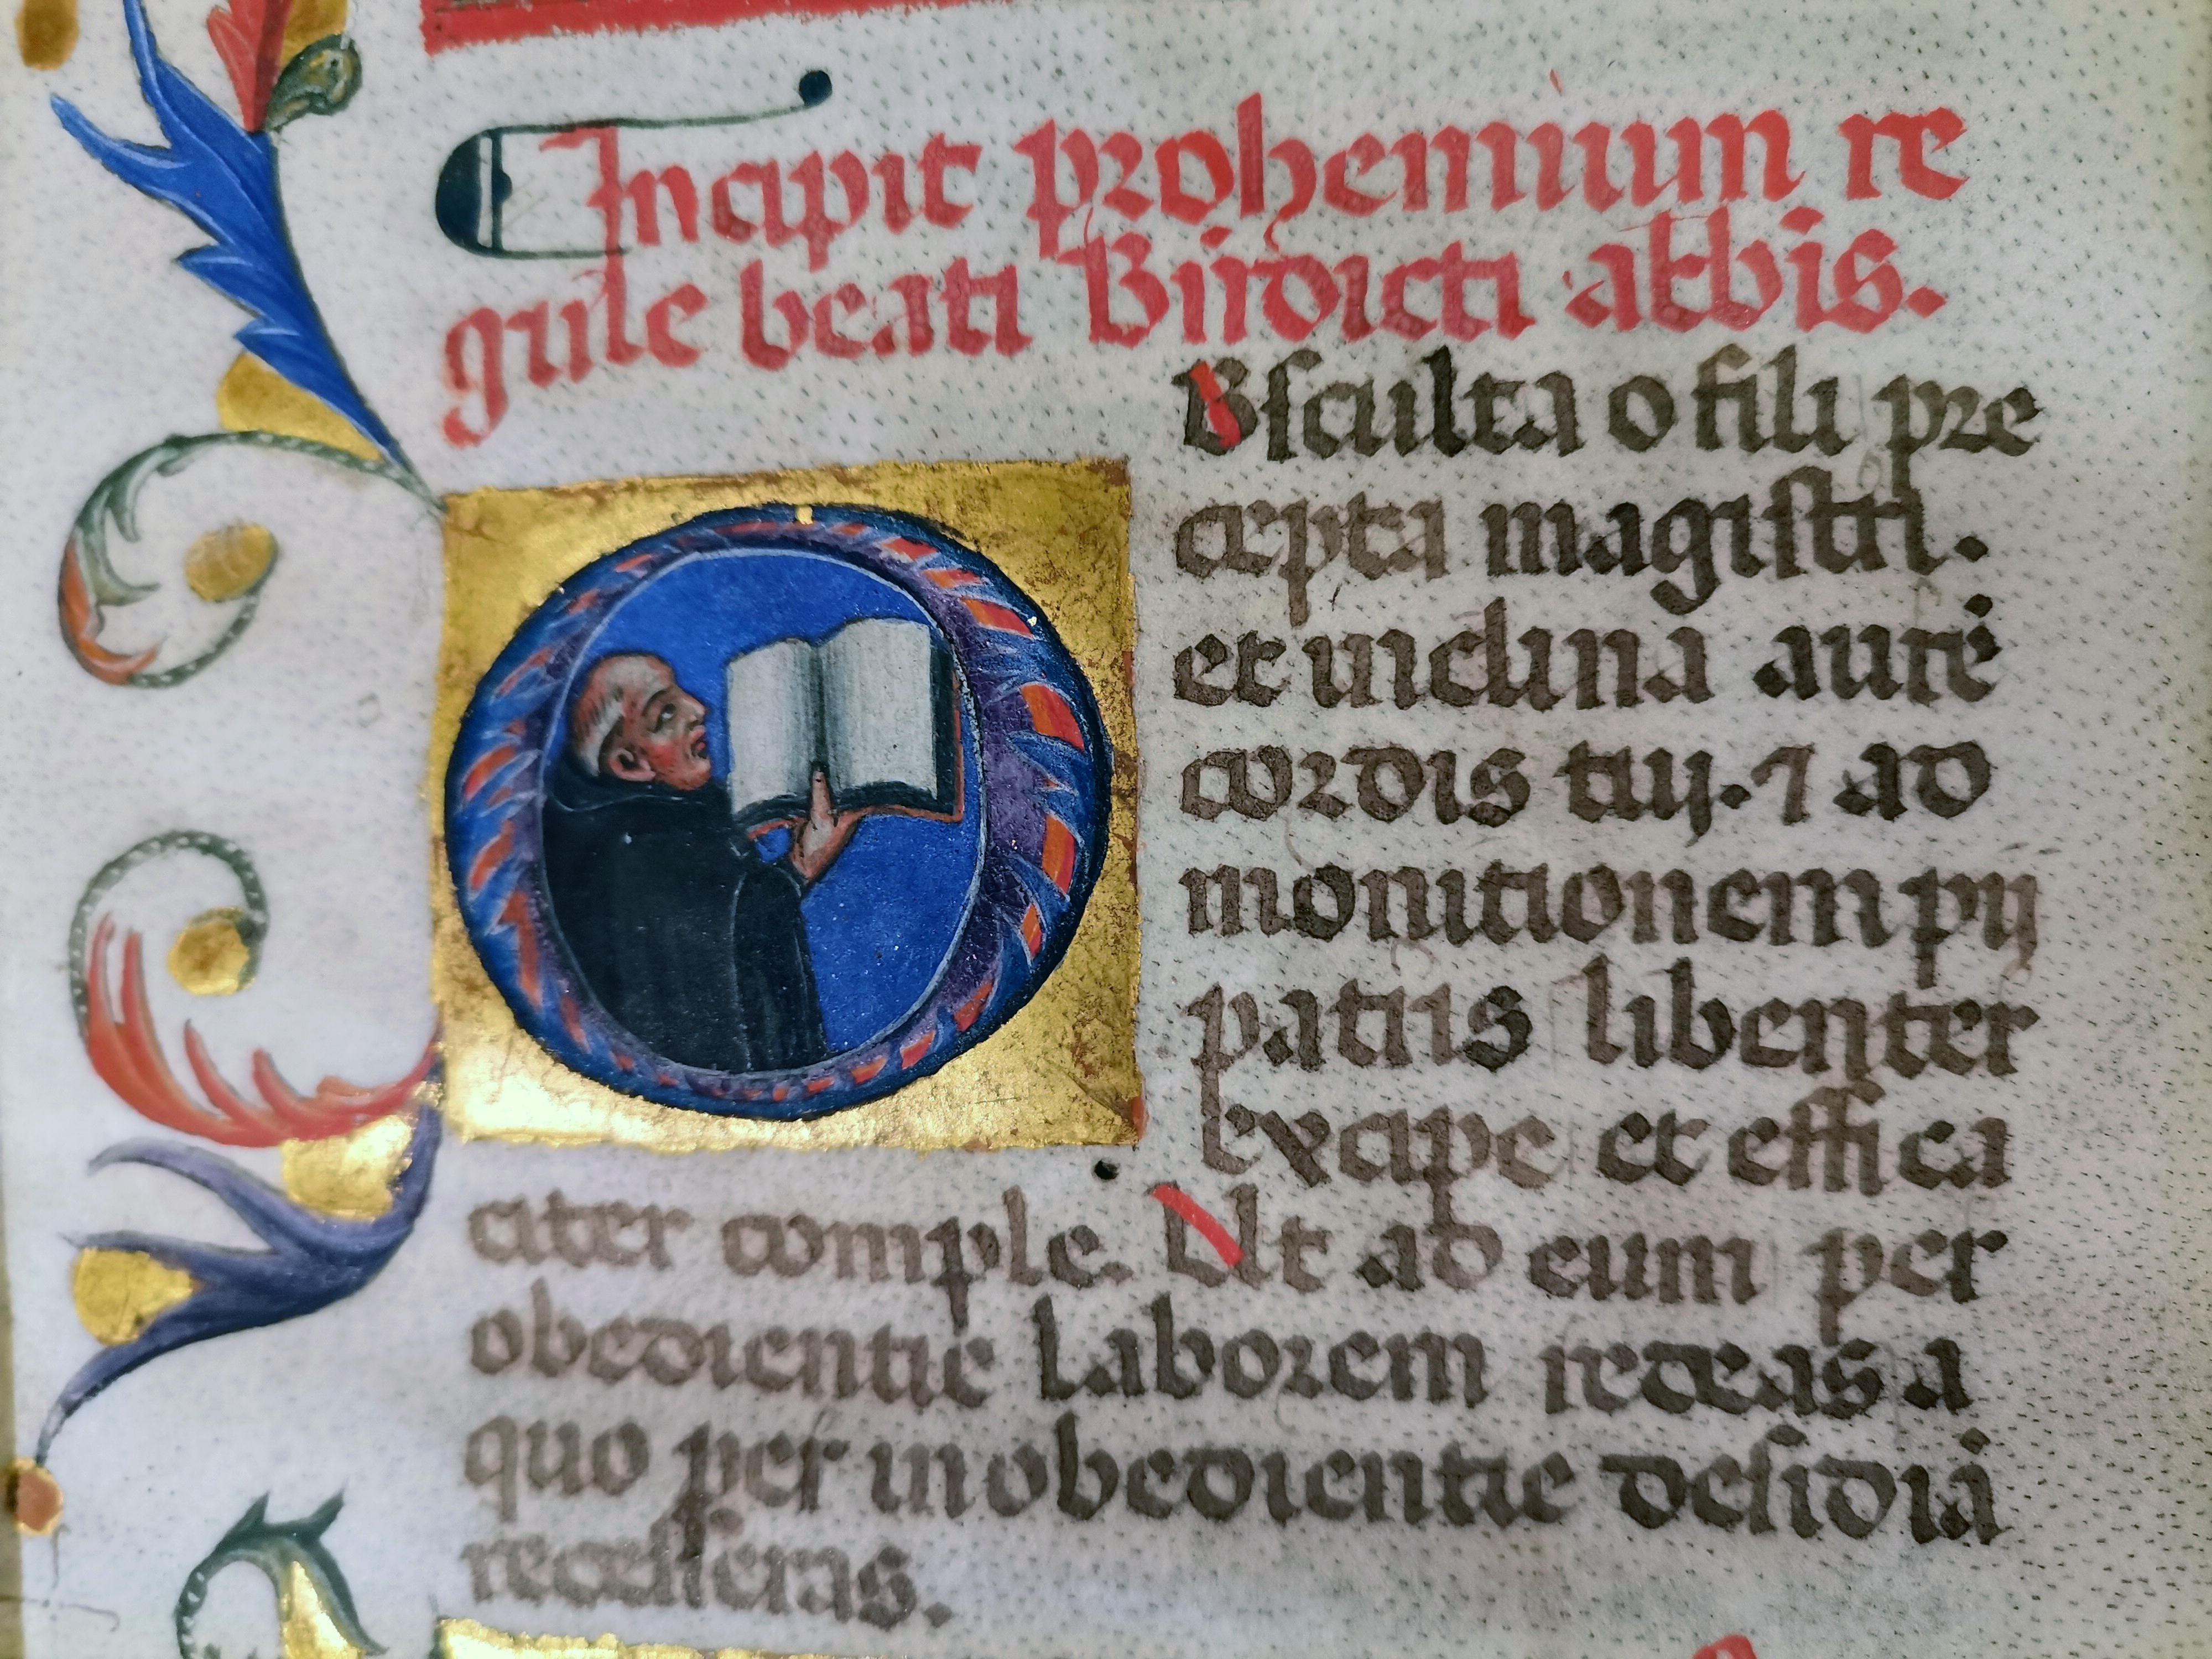 Incipit prohemium re
gule beati Bndicti abbis.
O
Bsculta o fili pre
cepta magistri.
et inclina aurē
cordis tuj. ⁊ ad
monitionem pij
patris libenter
excipe et effica
citer comple. Ut ad eum per
obedientie laborem redeas a
quo per inobedientie desidiā
recesseras.